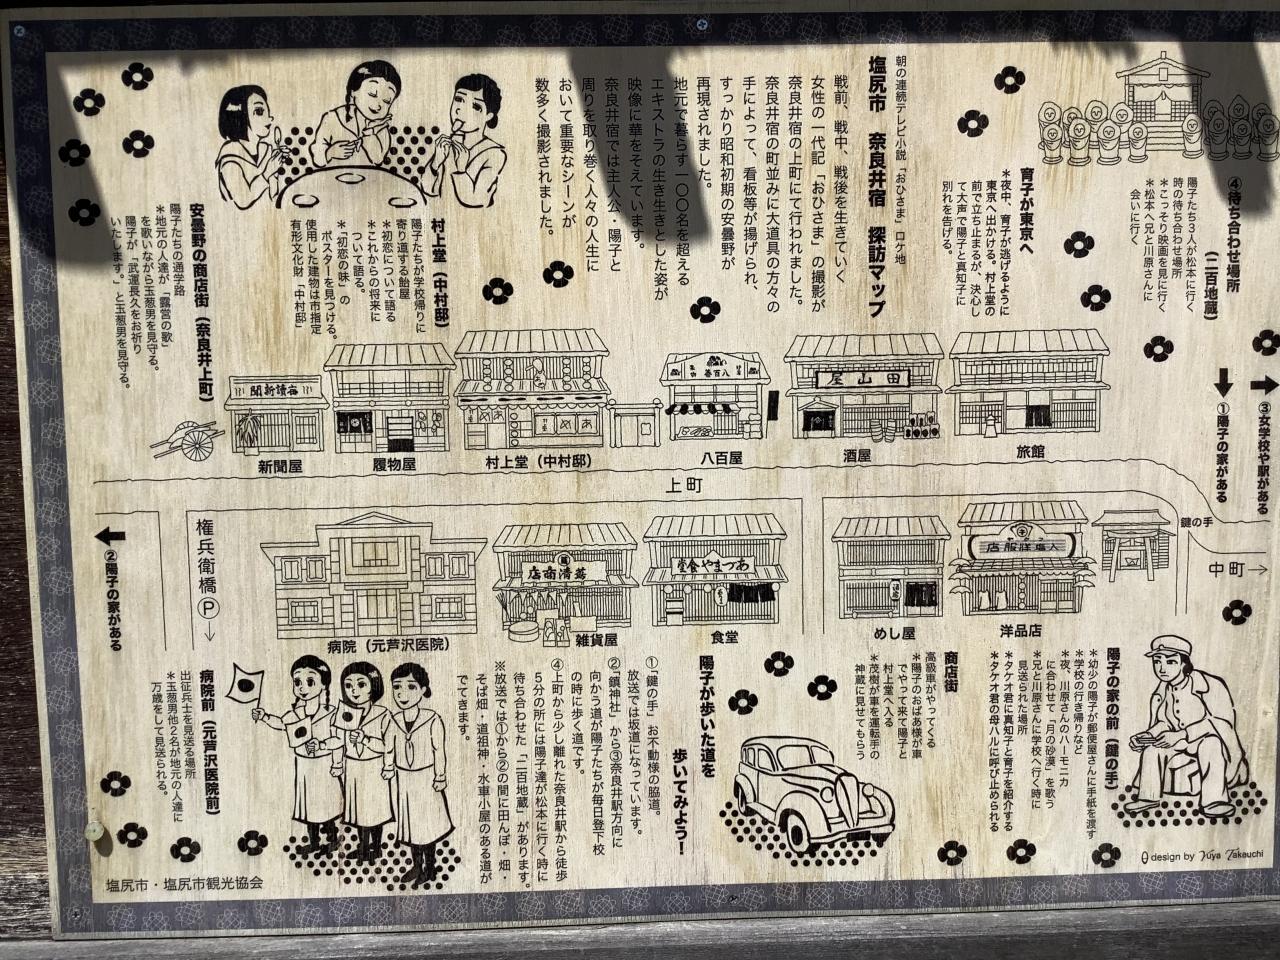 朝の連続テレビ小説「おひさま」ロケ地
塩尻市 奈良井宿 探訪マップ
戦前、戦中、戦後を生きていく
女性の一代記「おひさま」の撮影が
奈良井宿の上町にて行われました。
奈良井宿の町並みに大道具の方々の
手によって、看板等が揚げられ、
すっかり昭和初期の安曇野が
再現されました。
地元で暮らす一〇〇名を超える
エキストラの生き生きとした姿が
映像に華をそえています。
奈良井宿では主人公・陽子と
周りを取り巻く人々の人生に
おいて重要なシーンが
数多く撮影されました。
④待ち合わせ場所
(二百地蔵)
陽子たち3人が松本に行く
時の待ち合わせ場所
*こっそり映画を見に行く
*松本へ兄と川原さんに
会いに行く
育子が東京へ
*夜中、育子が逃げるように
東京へ出かける。村上堂の
前で立ち止まるが、決心し
て大声で陽子と真知子に
別れを告げる。
村上堂(中村邸)
陽子たちが学校帰りに
寄り道する飴屋
*初恋について語る
*これからの将来に
ついて語る。
*「初恋の味」の
ポスターを見つける。
使用した建物は市指定
有形文化財「中村邸」
安曇野の商店街(奈良井上町)
陽子たちの通学路
*地元の人達が「露営の歌」
を歌いながら玉葱男を見守る。
陽子が「武運長久をお祈り
いたします。」と玉葱男を見守る。
③女学校や駅がある
①陽子の家がある
聞新讀海
新聞屋
履物屋
村上堂(中村邸)
八百善
八百屋
屋山田
酒屋
旅館
上町
鍵の手
中町→
②陽子の家がある
権兵衛橋Ⓟ→
病院(元芦沢医院)
店商清
雑貨屋
堂食やまつあ
食堂
めし屋
店服洋
洋品店
陽子の家の前(鍵の手)
*幼少の陽子が郵便屋さんに手紙を渡す
*学校の行き帰りなど
*夜、川原さんのハーモニカ
に合わせて「月の砂漠」を歌う
*兄と川原さんに学校へ行く時に
見送られた場所
*タケオ君に真知子と育子を紹介する
*タケオ君の母ハルに呼び止められる
商店街
高級車がやってくる
*陽子のおばあ様が車
でやって来て陽子と
村上堂へ入る
*茂樹が車を運転手の
神蔵に見せてもらう
陽子が歩いた道を
歩いてみよう!
①「鍵の手」お不動様の脇道。
放送では坂道になっています。
②「鎮神社」から③奈良井駅方向に
向かう道が陽子たちが毎日登下校
の時に歩く道です。
④上町から少し離れた奈良井駅から徒歩
5分の所には陽子達が松本に行く時に
待ち合わせた「二百地蔵」があります。
※放送では①から②の間に田んぼ・畑・
そば畑・道祖神・水車小屋のある道が
でてきます。
病院前(元芦沢医院前)
出征兵士を見送る場所
*玉葱男他2名が地元の人達に
万歳をして見送られる。
塩尻市・塩尻市観光協会
design by Yuya Takeuchi